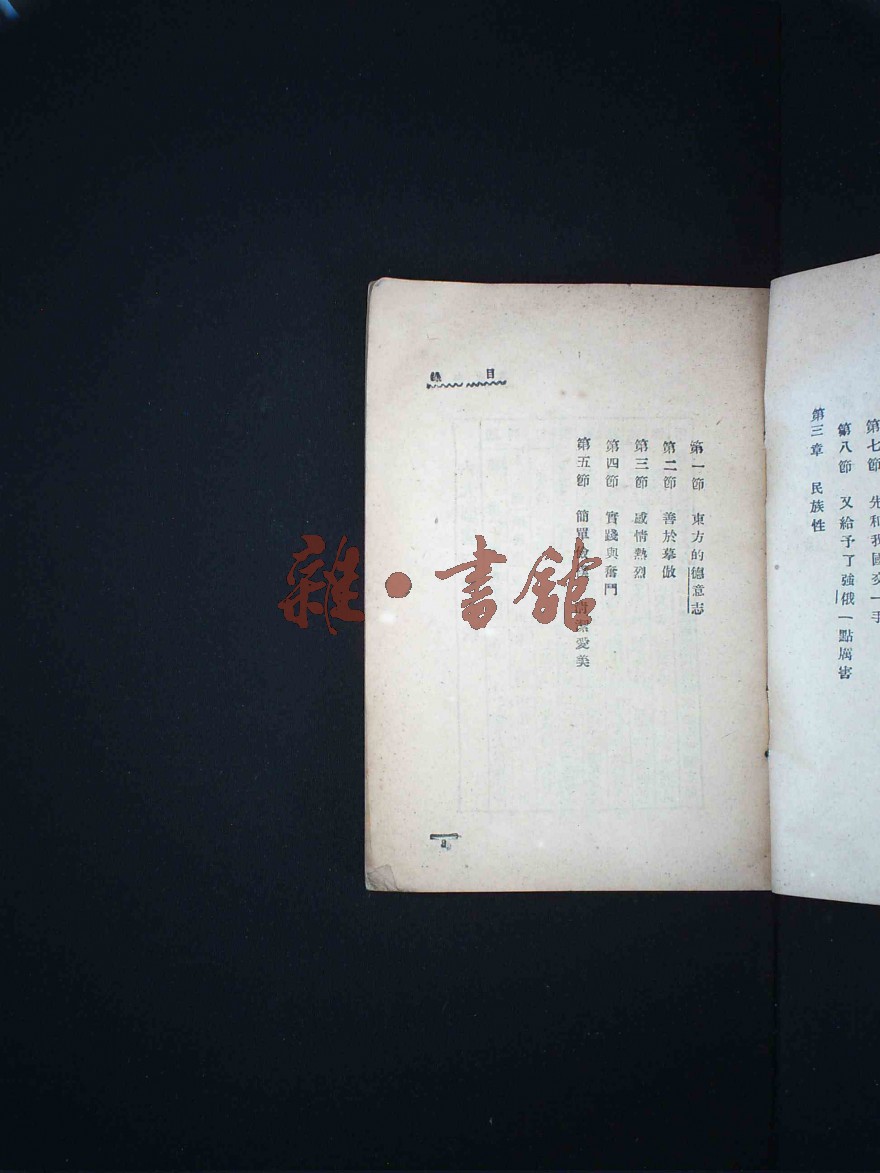 第七節 先和我國交一手
第八節 又給予了強俄一點厲害
第三章 民族性
目錄
第一節 東方的德意志
第二節 善於摹倣
第三節 感情熱烈
第四節 實踐與奮鬥
第五節 簡單 愛美
雜·書館